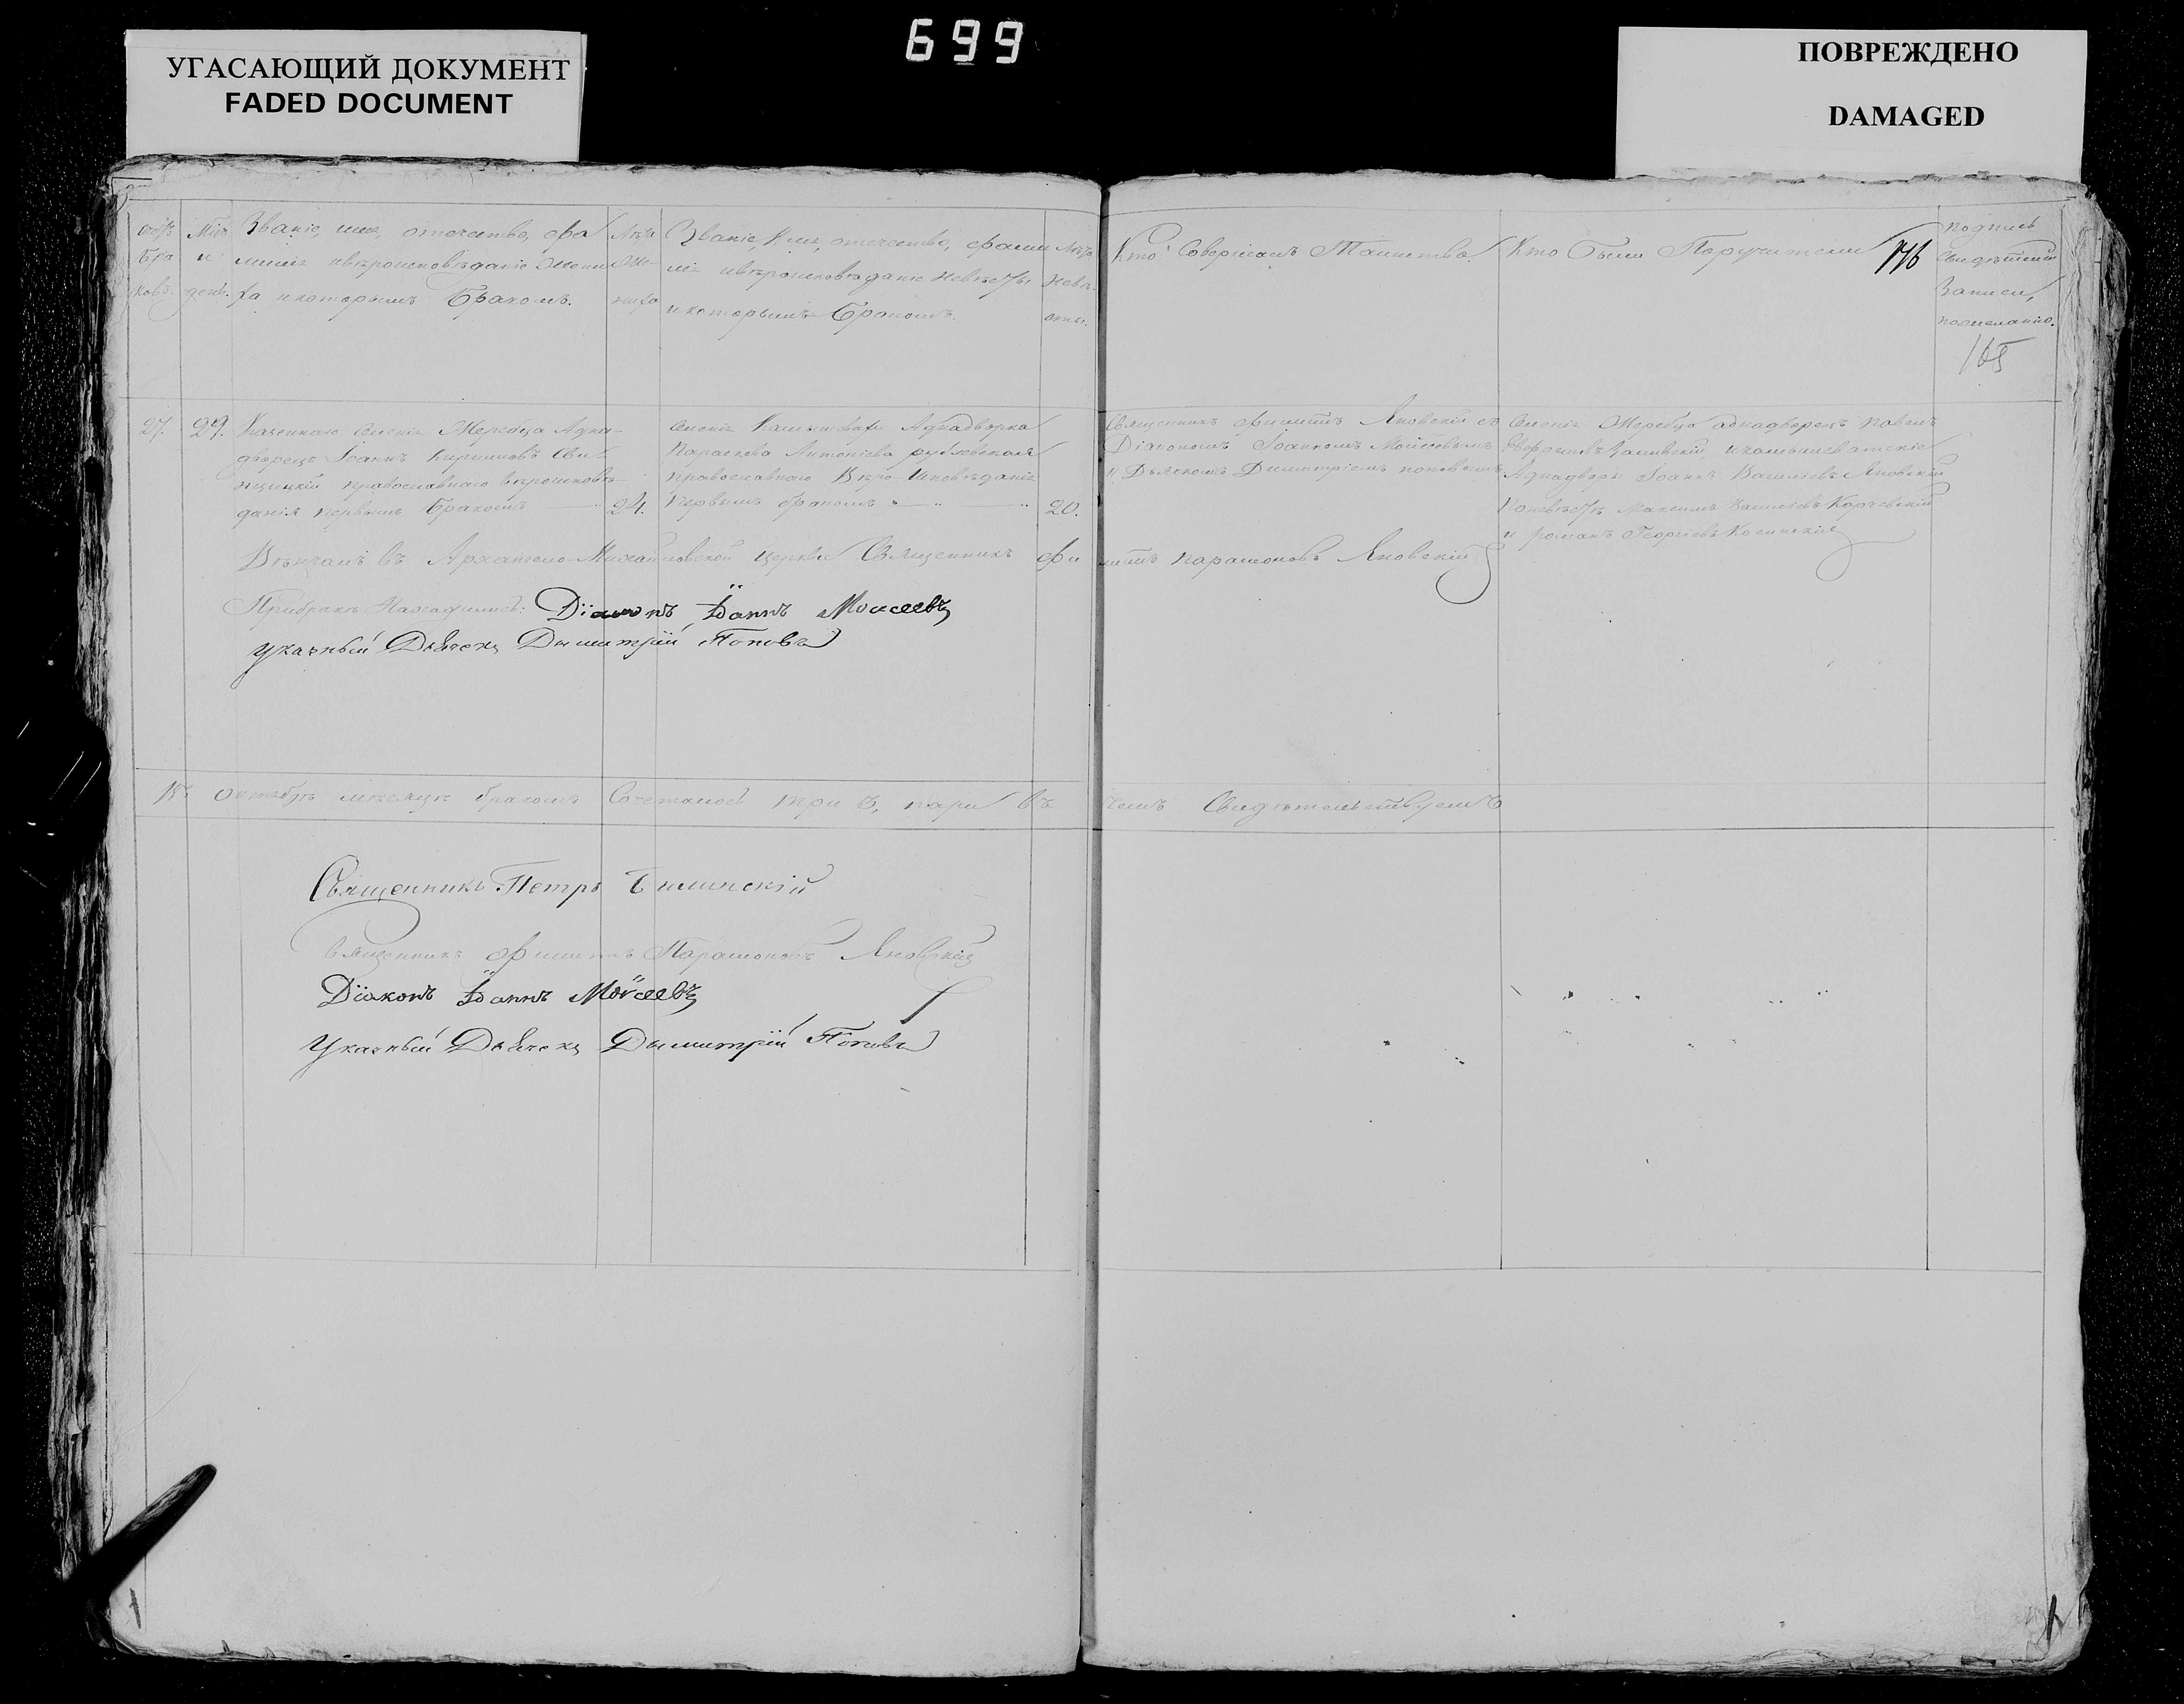 699
УГАСАЮЩИЙ ДОКУМЕНТ
FADED DOCUMENT
ПОВРЕЖДЕНО
DAMAGED
счетъ бра ковъ.
Мѣс. и день.
Званіе, имя, отечество, фа
милія и вѣроисповѣданіе Жени
ха и которымъ Бракомъ.
Лѣта Же ниха
Званіе, Имя, отечество, фами
лія и вѣроисповѣданіе Невѣсты
и которымъ Бракомъ.
Лѣта Невѣ сты.
Кто Совершалъ Таинство
Кто Были Поручители
176
подпись
Свидѣтелей
Записи,
по желанію.
165
27.
29.
Казеннаго Селенія Жеребца Адно-
дворецъ Іоаннъ Кириловъ Сви-
нецицкій православнаго вѣроисповѣ-
данія первымъ Бракомъ
24.
Селенія Адгадворка
Параскева Антоніева рублевская
православнаго Вѣро-Исповѣданія
первымъ бракомъ
20.
Священникъ Филиппъ Яновскій съ
Діакономъ Іоанномъ Мойсеевымъ
и Дьячкомъ Димитріемъ поповымъ
Селенія Жеребца аднадворецъ Павелъ
Аднадворы Іоаннъ Васильевъ Яновскій
По невѣстѣ Максимъ Васильевъ Корчевскій
и романъ Георгіевъ Косинскій
Вѣнчалъ въ Архангело-Михайловской церкви Священникъ Фи липпъ Парамоновъ Яновскій
При бракѣ Находились: Діаконъ Іоаннъ Моисеевъ
указный Дьячекъ Дымитрій Поповъ
Въ Октябрѣ мѣсяцѣ бракомъ Сочеталось три 3, пари въ чемъ Свидѣтельствуемъ
Священникъ Петръ Билинскій
Священникъ Филиппъ Парамоновъ Яновскій
Діаконъ Іоаннъ Мойсеевъ
Указный Дьячекъ Дымитрій Поповъ